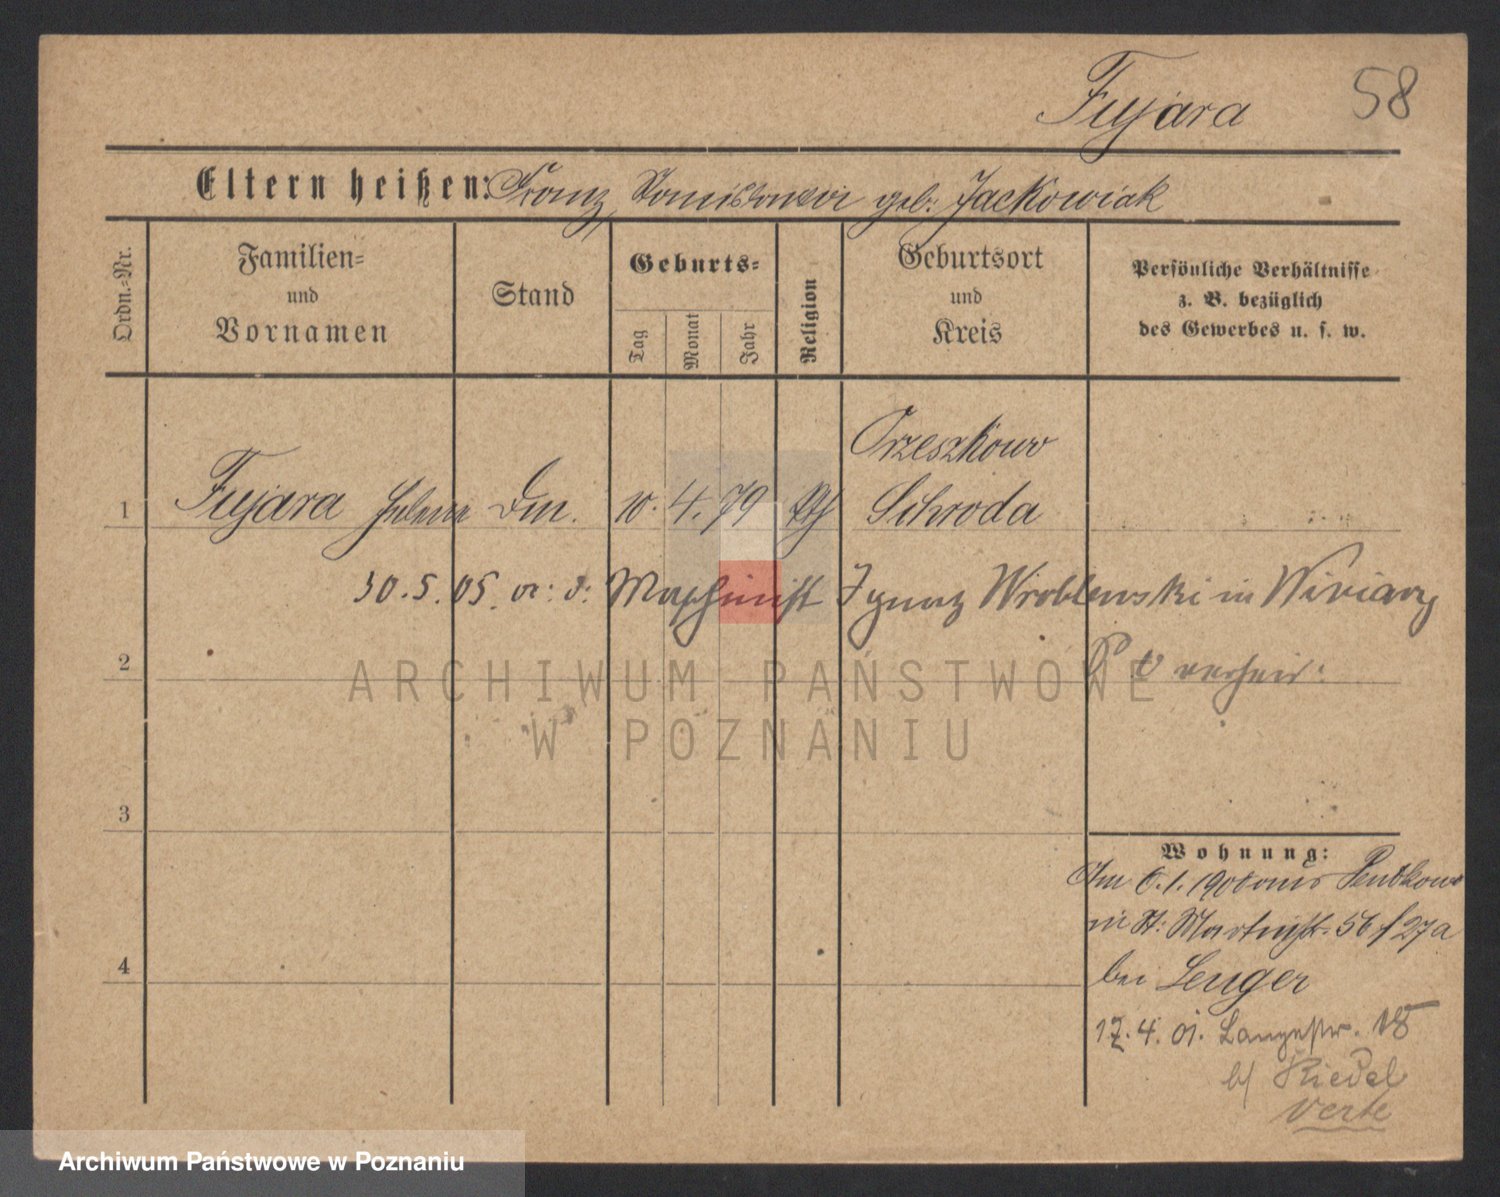 Fujara 58
Eltern heißen: Franz, Stanislawa geb. Jackowiak
Ordn.-Nr.
Familien-
und
Vornamen
Stand
Geburts-
Tag
Monat
Jahr
Religion
Geburtsort
und
Kreis
Persönliche Verhältnisse
z. B. bezüglich
des Gewerbes u. s. w.
Orzeszkowo
1 Fujara Helene Dm. 10. 4. 79 Kth Schroda
30. 5. 05. m. d. Maschinist Ignatz Wroblewski in
2
3
Wohnung:
Am 6. 1. 1900 aus
in St. Martinstr. 56 / 27a
4 bei Lenger
17. 4. 01. Langestr. 18
b/ Riedel
verte
ARCHIWUM PAŃSTWOWE
W POZNANIU
Archiwum Państwowe w Poznaniu